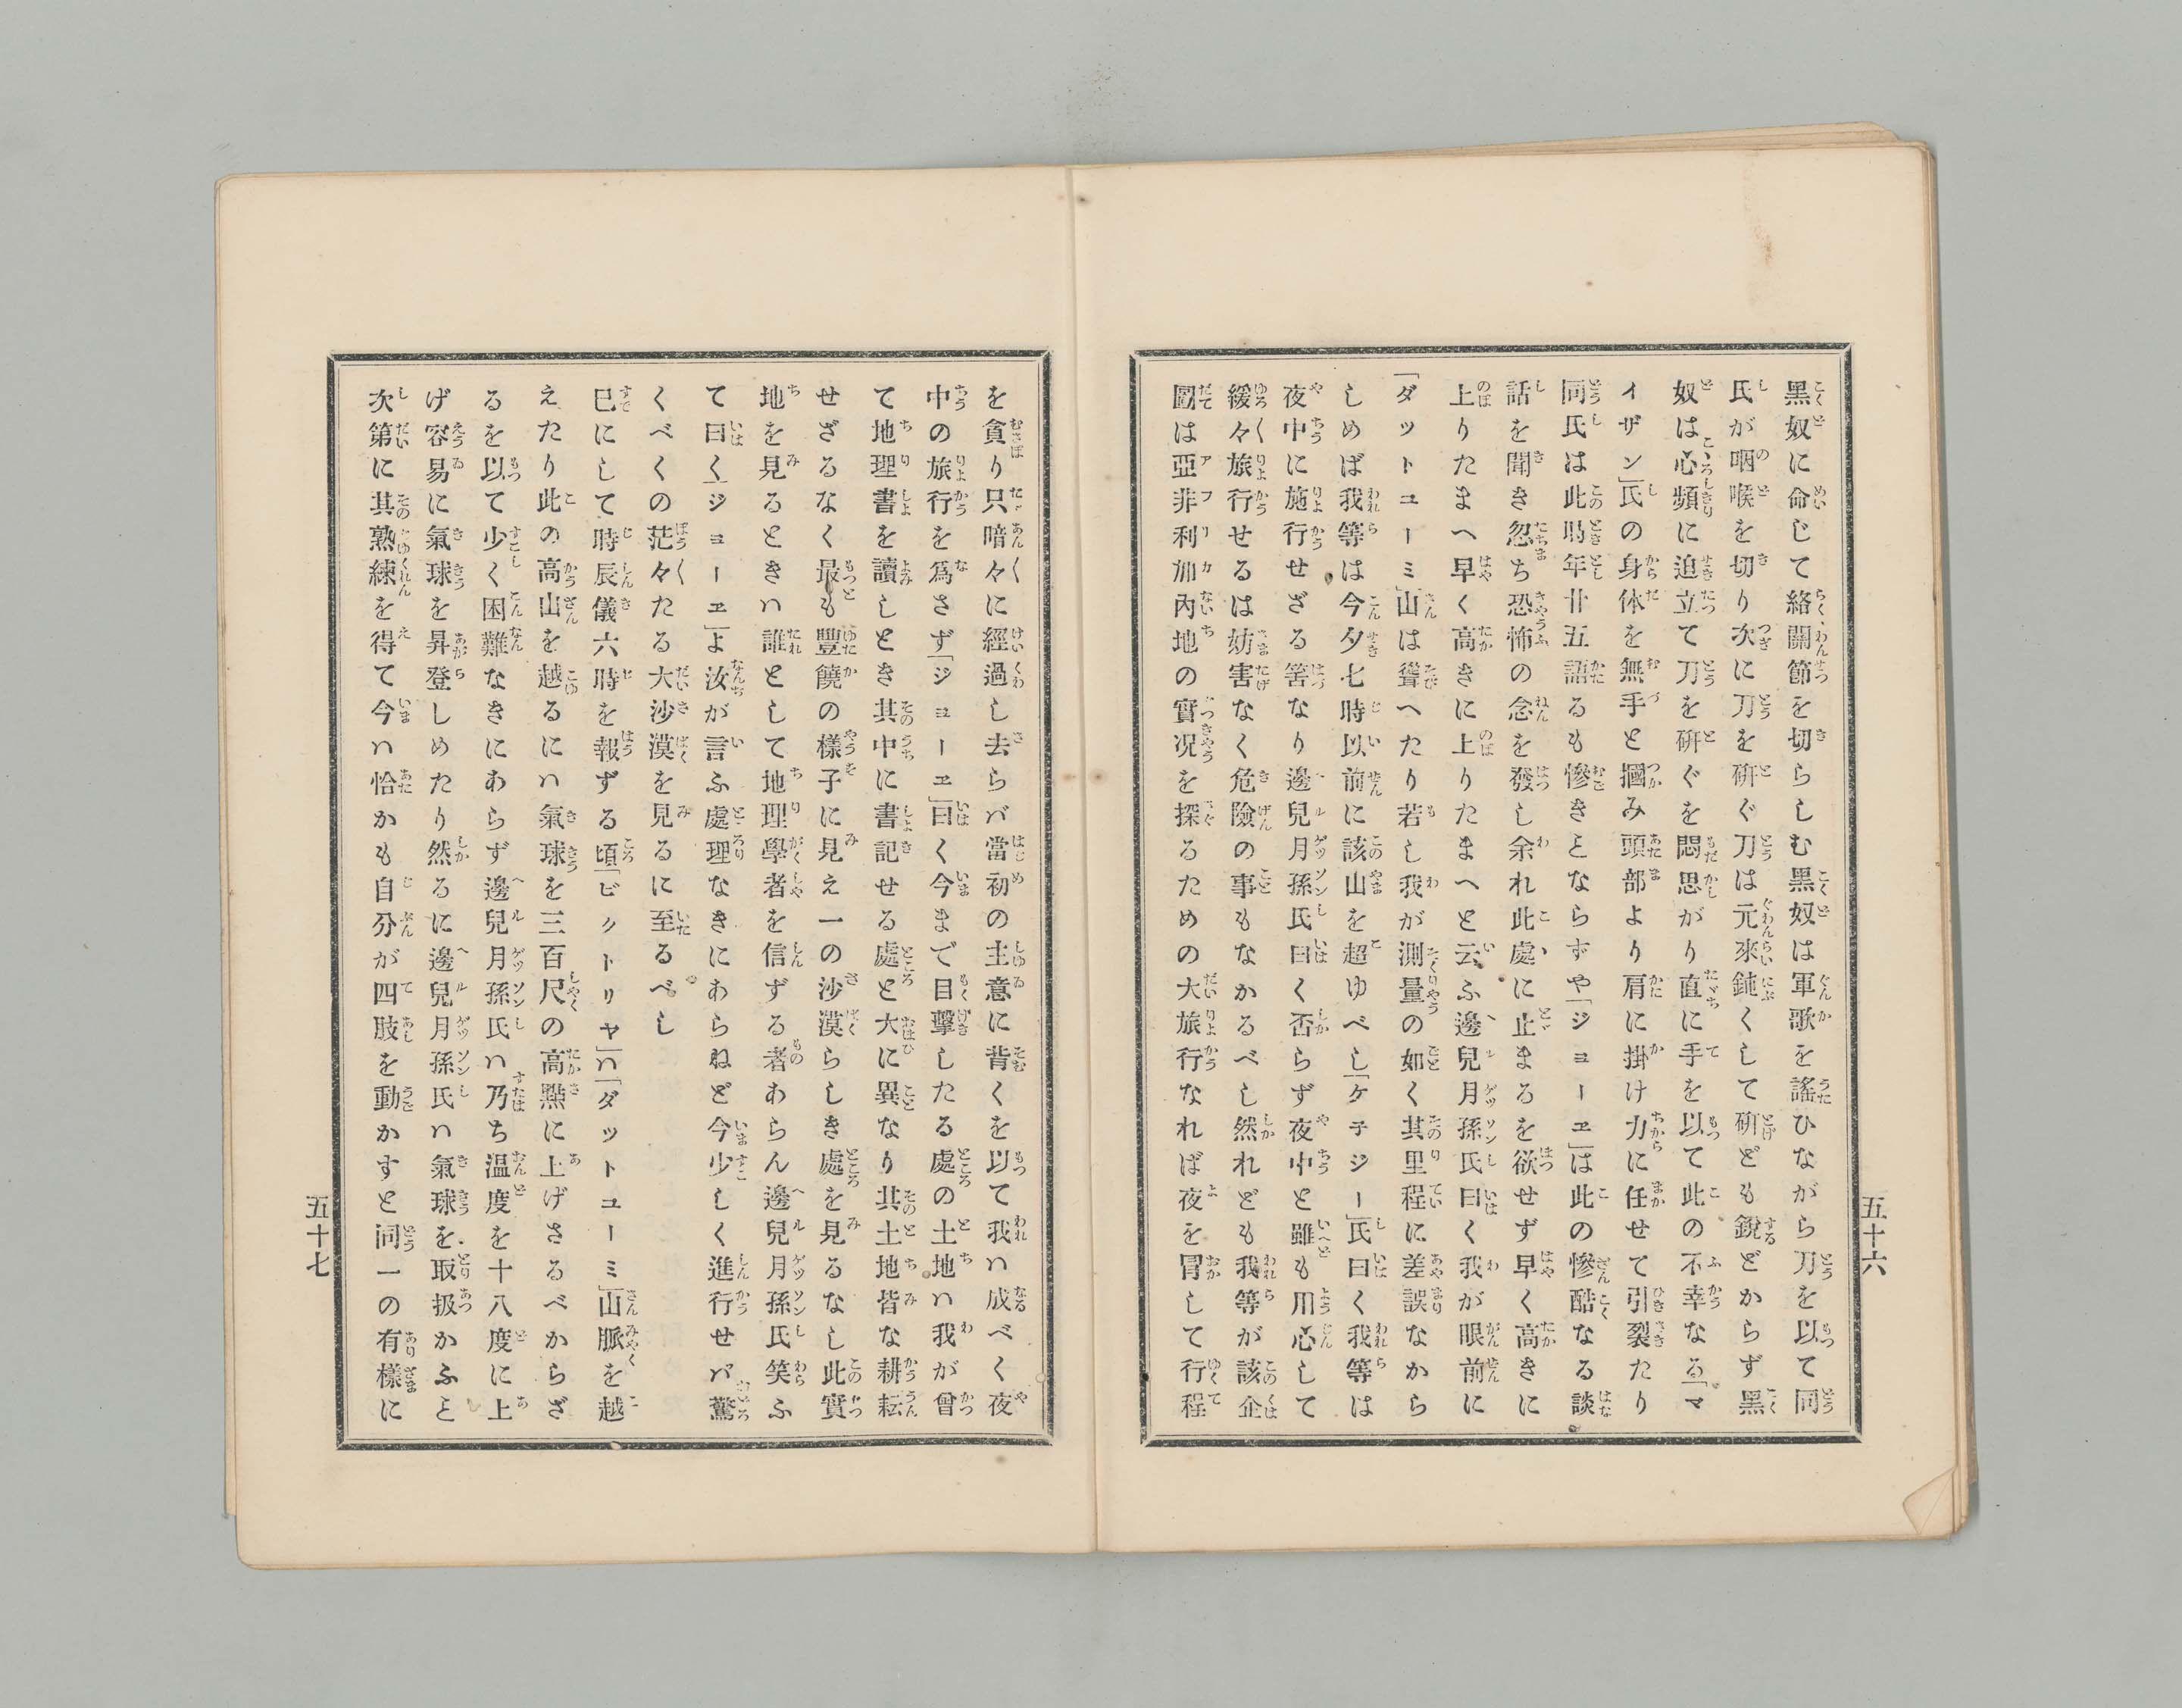 黑奴に命じて絡關節を切らしむ黑奴は軍歌を謠ひながら刀を以て同
氏が咽喉を切り次に刀を硏ぐ刀は元來鈍くして硏げども銳どからず黑
奴は心頻に迫立て刀を硏ぐを悶思がり直に手を以て此の不幸なる「マ
イザン」氏の身体を無手と摑み頭部より肩に掛け力に任せて引裂たり
同氏は此時年廿五語るも慘きとならずや「ジヨーヱ」は此の慘酷なる談
話を聞き忽ち恐怖の念を發し余れ此處に止まるを欲せず早く高きに
上りたまへ早く高きに上りたまへと云ふ邊兒月孫氏曰く我が眼前に
「ダットユーミ」山は聳へたり若し我が測量の如く其里程に差誤なから
しめば我等は今夕七時以前に該山を超ゆべし「ケ子ジー」氏曰く我等は
夜中に施行せざる筈なり邊兒月孫氏曰く否らず夜中と雖も用心して
緩々旅行せるは妨害なく危險の事もなかるべし然れども我等が該企
圖は亞非利加內地の實况を探るための大旅行なれば夜を冐して行程
五十六
を貪り只暗々に經過し去らバ當初の主意に背くを以て我ハ成べく夜
中の旅行を爲さず「ジヨーヱ」曰く今まで目擊したる處の土地ハ我が曾
て地理書を讀しとき其中に書記せる處と大に異なり其土地皆な耕耘
せざるなく最も豐饒の樣子に見え一の沙漠らしき處を見るなし此實
地を見るときハ誰として地理學者を信ずる者あらん邊兒月孫氏笑ふ
て曰く「ジヨーヱ」よ汝が言ふ處理なきにあらねど今少しく進行せバ驚
くべくの茫々たる大沙漠を見るに至るべし
已にして時辰儀六時を報ずる頃「ビクトリヤ」ハ「ダットユーミ」山脈を越
えたり此の高山を越るにハ氣球を三百尺の高㸃に上げさるべからざ
るを以て少く困難なきにあらず邊兒月孫氏ハ乃ち温度を十八度に上
げ容易に氣球を昇登しめたり然るに邊兒月孫氏ハ氣球を取扱かふと
次第に其熟練を得て今ハ恰かも自分が四肢を動かすと同一の有樣に
五十七